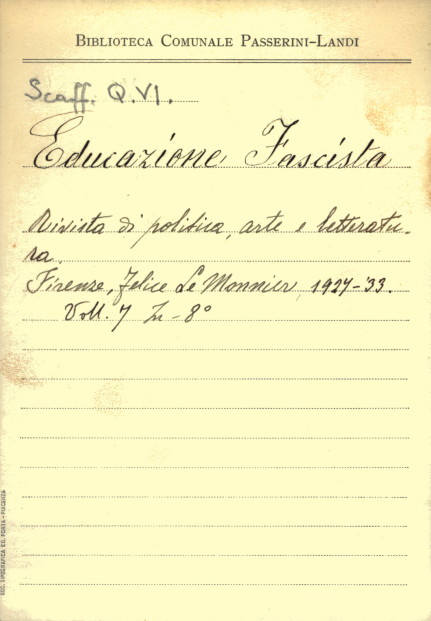 BIBLIOTECA COMUNALE PASSERINI-LANDI
Scaff. Q.VI.
Educazione Fascista
Rivista di politica, arte e letteratu-
ra.
Firenze, Felice Le Monnier, 1927-'33.
Voll. 7 In-8°
SOC. TIPOGRAFICA ED. PORTA - PIACENZA